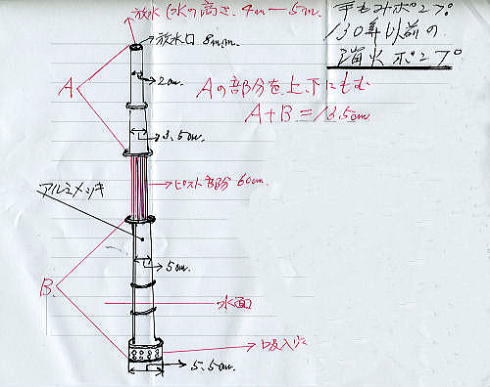 放水(水の高さ、4m—5m.
放水口 8m/m.
手もみポンプ
130年以前の
消火ポンプ
A
2cm.
Aの部分を上下にもむ
A+B=13.5cm
3.5cm.
ピスト部分 60cm.
アルミメッキ
5cm.
B
水面
吸入穴
5.5cm.